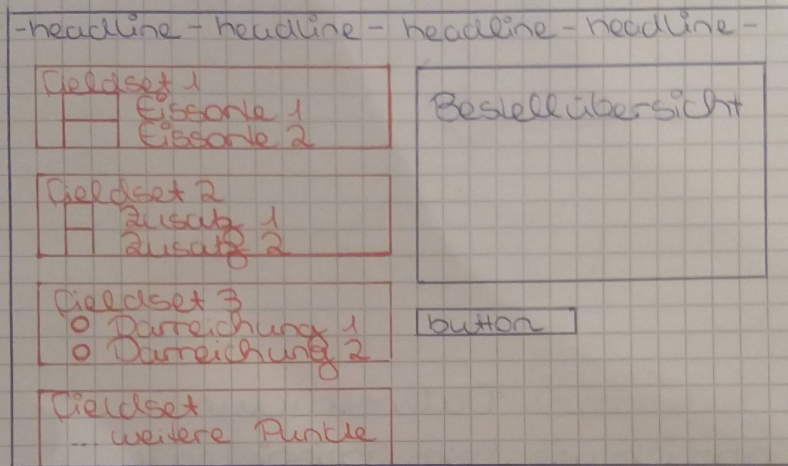 -headline - headline - headline - headline -
Fieldset 1
Eissorte 1
Eissorte 2
Fieldset 2
Zusatz 1
Zusatz 2
Fieldset 3
Darreichung 1
Darreichung 2
Fieldset
... weitere Punkte
Bestellübersicht
button